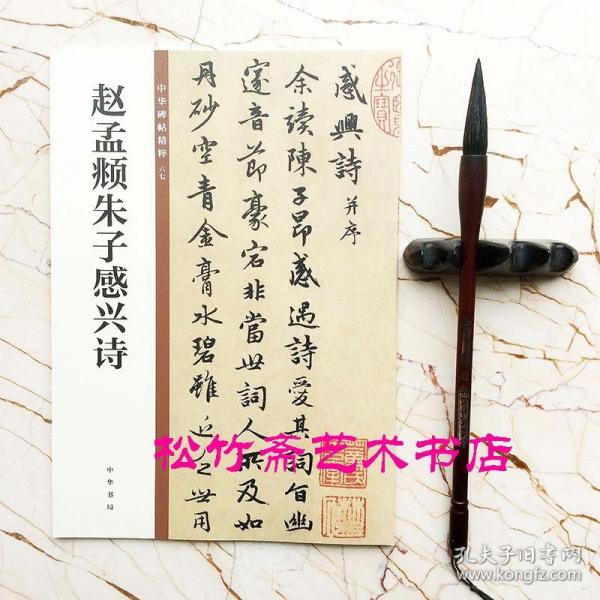 赵孟頫朱子感兴诗
中华书局
中华碑帖精粹 六七
感興詩 并序
余讀陳子昂感遇詩愛其詞旨幽
邃音節豪宕非當世詞人所及如
丹砂空青金膏水碧雖近乏世用
松竹斋艺术书店
孔夫子旧书网
www.kongfz.com